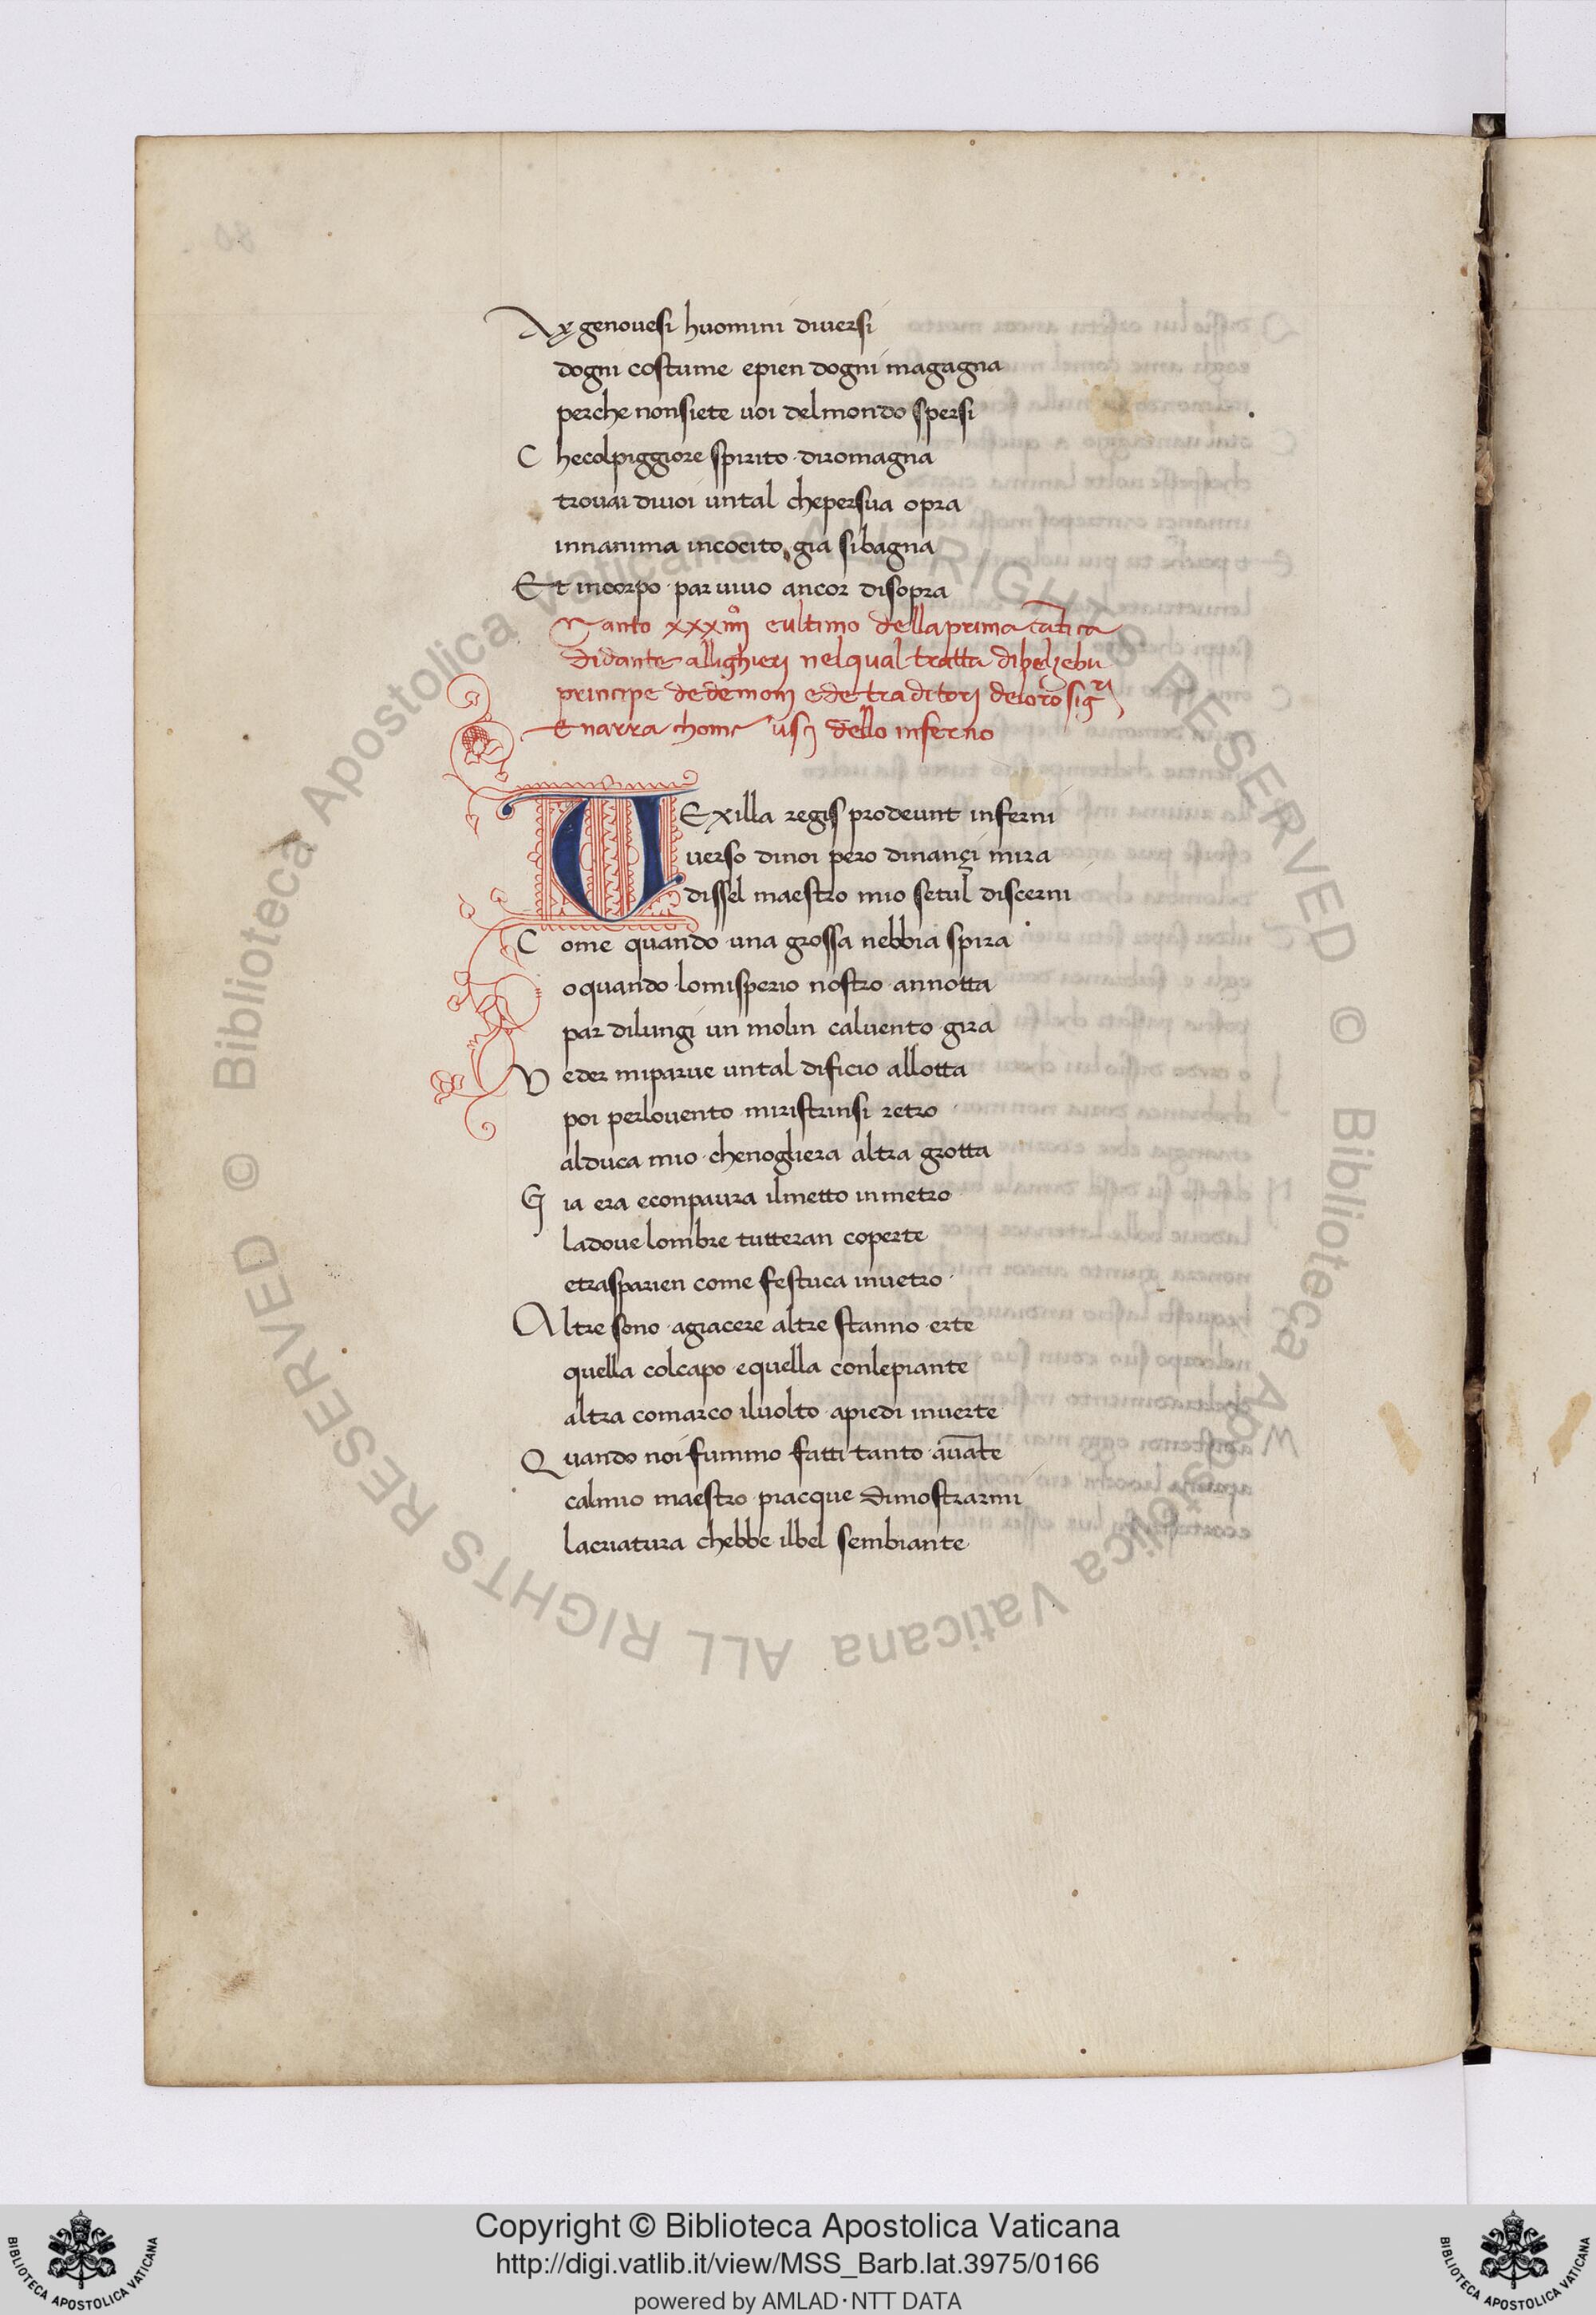 Ay genouesi huomini diuersi
dogni costume epien dogni magagna
perche nonsiete uoi delmondo spersi
C hecolpiggiore spirito diromagna
trouai diuoi untal chepersua opra
innanima incocito gia sibagna
Et incorpo par uiuo ancor disopra
Canto xxxiiijº eultimo dellaprima cātica
didante allighieri nelqual tratta dibelzebu
principe dedemonj ededetraditorj deloro sigri
E narra chome uscj dello inferno
VExilla regis prodeunt inferni
uerso dinoi pero dinançi mira
dissel maestro mio setul discerni
C ome quando una grossa nebbia spira
oquando lomisperio nostro annotta
par dilungi un molin caluento gira
V eder miparue untal dificio allotta
poi perlouento miristrinsi retro
alduca mio chenogliera altra grotta
G ia era econpaura ilmetto inmetro
ladoue lombre tutteran coperte
etrasparien come festuca inuetro
Altre sono agiacere altre stanno erte
quella colcapo equella conlepiante
altra comarco iluolto apiedi inuerte
Q uando noi fummo fatti tanto auāte
calmio maestro piacque dimostrarmi
lacriatura chebbe ilbel sembiante
Copyright © Biblioteca Apostolica Vaticana
http://digi.vatlib.it/view/MSS_Barb.lat.3975/0166
powered by AMLAD·NTT DATA
BIBLIOTECA APOSTOLICA VATICANA
BIBLIOTECA APOSTOLICA VATICANA
© Biblioteca Apostolica Vaticana ALL RIGHTS RESERVED
© Biblioteca Apostolica Vaticana ALL RIGHTS RESERVED